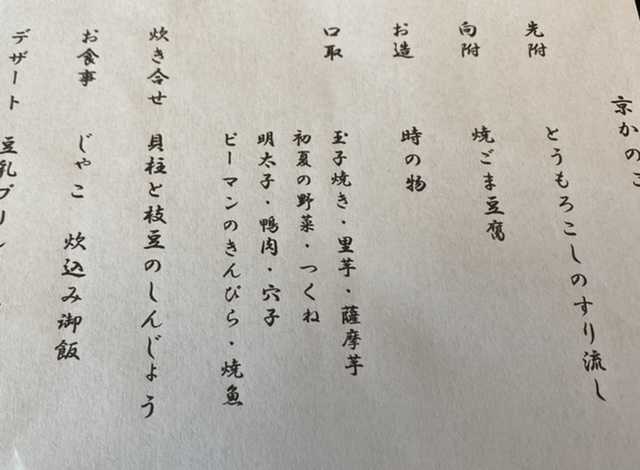 京かのこ
先附 とうもろこしのすり流し
向附 焼ごま豆腐
お造 時の物
口取 玉子焼き・里芋・薩摩芋
初夏の野菜・つくね
明太子・鴨肉・穴子
ピーマンのきんぴら・焼魚
炊き合せ 貝柱と枝豆のしんじょう
お食事 じゃこ 炊込み御飯
デザート 豆乳プリン